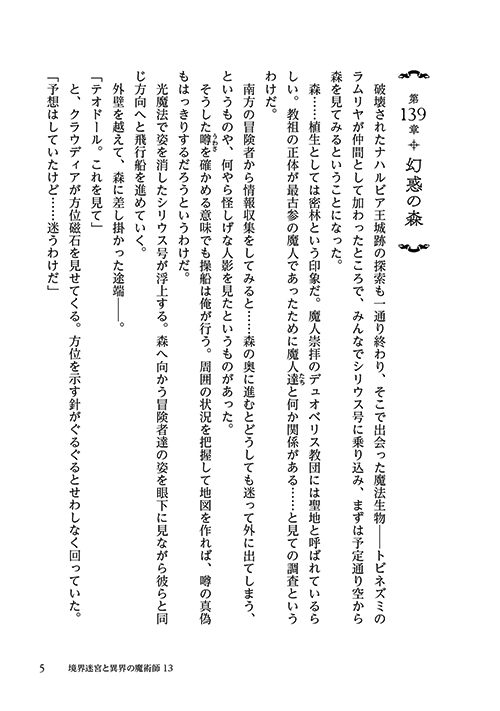 第139章 幻惑の森
破壊されたナハルビア王城跡の探索も一通り終わり、そこで出会った魔法生物――トビネズミの
ラムリヤが仲間として加わったところで、みんなでシリウス号に乗り込み、まずは予定通り空から
森を見てみるということになった。
森……植生としては密林という印象だ。魔人崇拝のデュオベリス教団には聖地と呼ばれているら
しい。教祖の正体が最古参の魔人であったために魔人達と何か関係がある……と見ての調査という
わけだ。
南方の冒険者から情報収集をしてみると……森の奥に進むとどうしても迷って外に出てしまう、
というものや、何やら怪しげな人影を見たというものがあった。
そうした噂を確かめる意味でも操船は俺が行う。周囲の状況を把握して地図を作れば、噂の真偽
もはっきりするだろうというわけだ。
光魔法で姿を消したシリウス号が浮上する。森へ向かう冒険者達の姿を眼下に見ながら彼らと同
じ方向へと飛行船を進めていく。
外壁を越えて、森に差し掛かった途端――。
「テオドール。これを見て」
と、クラウディアが方位磁石を見せてくる。方位を示す針がぐるぐるとせわしなく回っていた。
「予想はしていたけど……迷うわけだ」
5 境界迷宮と異界の魔術師 13